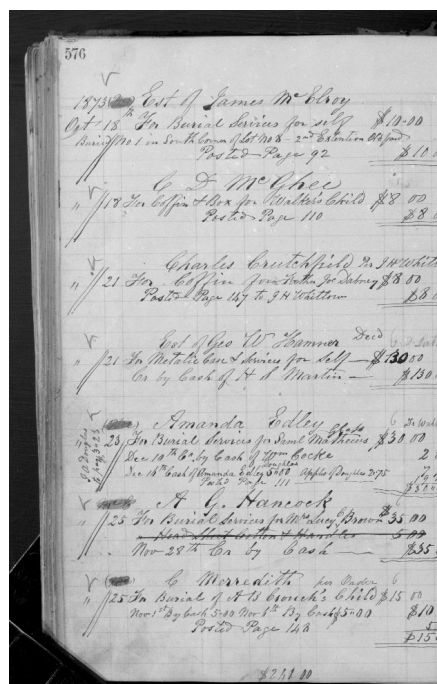 576
1873 Est of James McElroy
Oct 18th For Burial Services for self $10.00
Buried No 1 in South Corner of Lot No 8 - 2nd Extention Old yard
Posted Page 92 $10
C D McGhee
" 18 For Coffin & Box for Walker's Child $8 00
Posted Page 110 $8
Charles Crutchfield Per J H Whitlow
" 21 For Coffin for Jr Dabney $8.00
Posted Page 147 to J H Whitlow $8
Est of Geo W Hamner Decd
" 21 For Metalic Case & Services for self $130 00
Cr by Cash of H S Martin $130
Amanda Edley
23 For Burial Services for Saml Mathews $30.00
Dec 10th Cr. by Cash of Wm Cocke 2
Dec 16th Cash of Amanda Edley 5.00 2.75
Postd Page 111
A G. Hancock
" 25 For Burial Services for Mrs Lucy C Brown $35 00
Head 5.00
Nov 28th Cr by Cash $35
C Merredith per Order
" 25 For Burial of A B Crouch's Child $15 00
Nov 1st By Cash 5.00 Nov 8th By Cash $5.00 $10
Posted Page 148 5
$15
$241.00